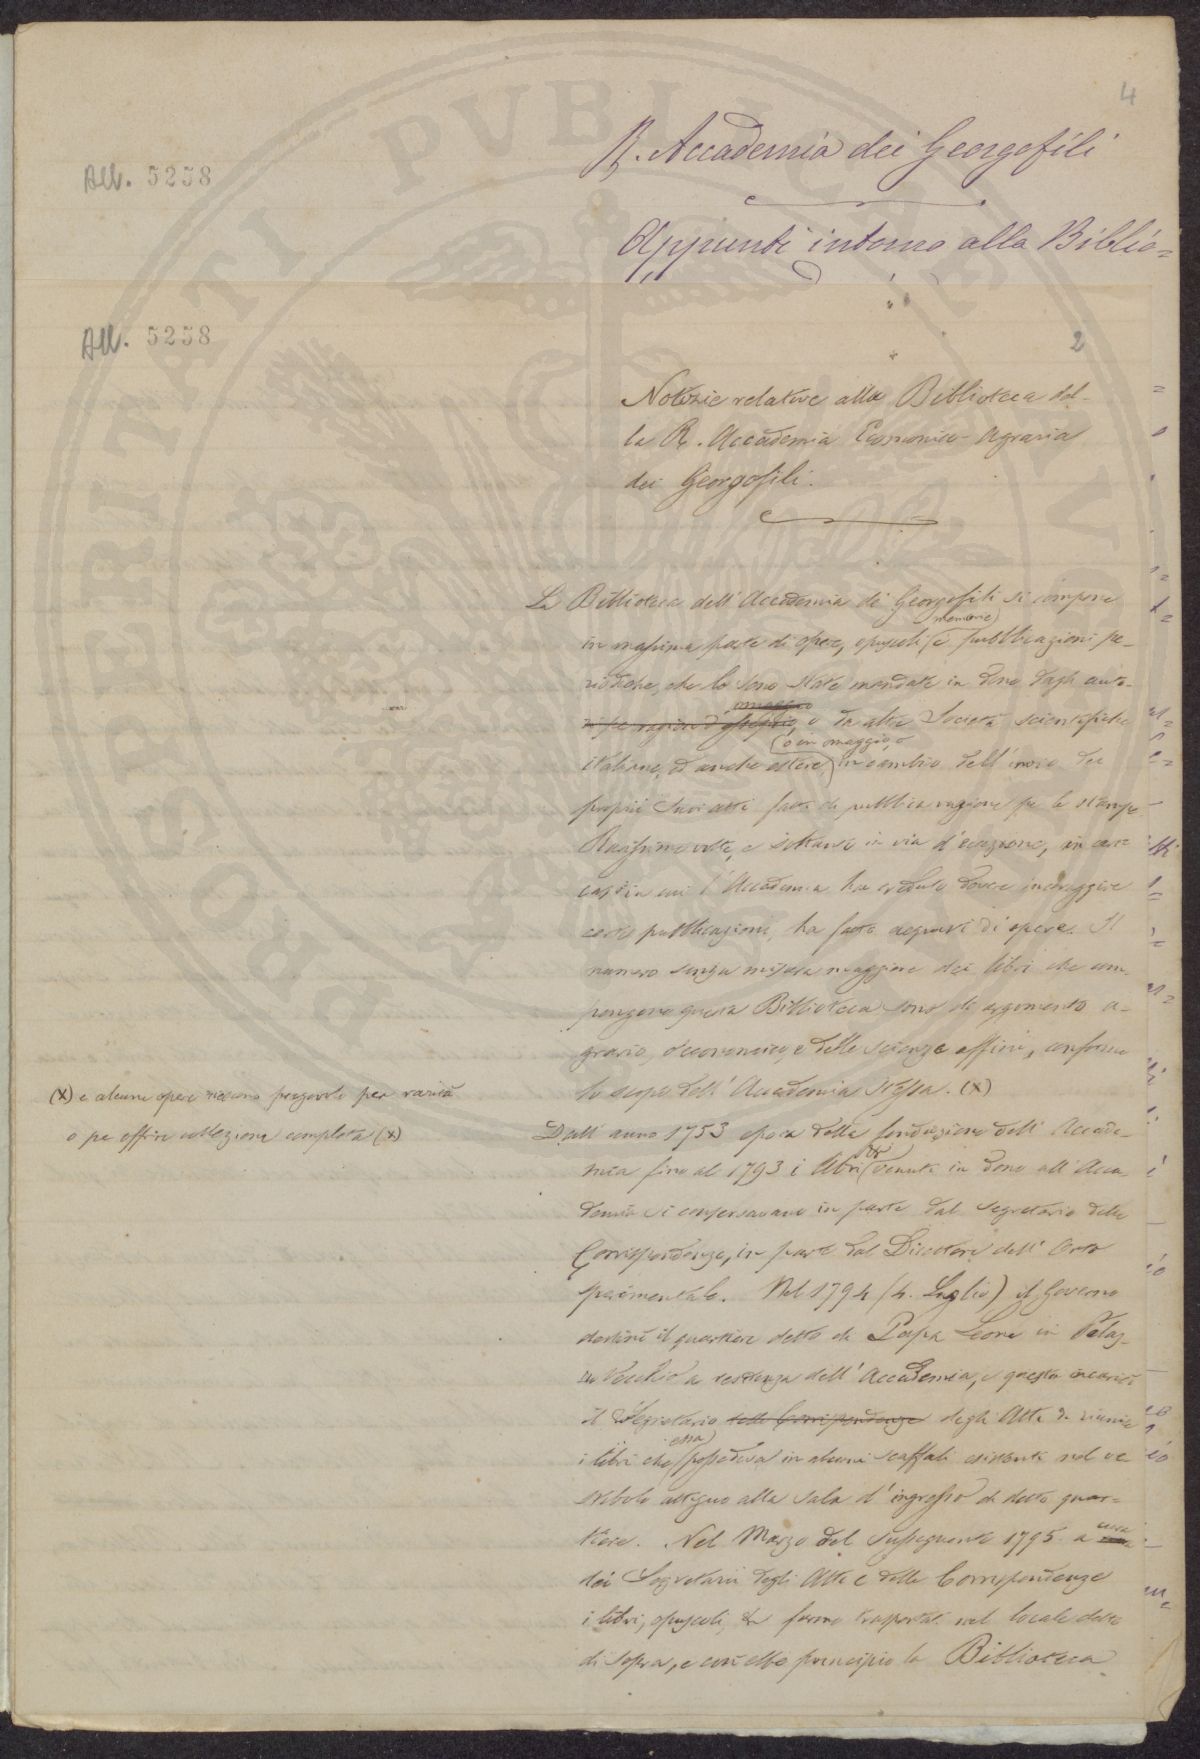 4
R. Accademia dei Georgofili
All. 5258
Appunti intorno alla Biblio=
All. 5258
2
Notizie relative alla Biblioteca del-
la R. Accademia Economico-Agraria
dei Georgofili.
La Biblioteca dell'Accademia dei Georgofili si compone
in massima parte di opere, opuscoli (memorie) e pubblicazioni pe-
riodiche, che le sono state mandate in dono dagli auto-
omaggio
o da altre Società scientifiche
italiane, ed anche estere (o in omaggio, o) in cambio dell'invio dei
proprii suoi atti fatti di pubblica ragione per le stampe
Rarissime volte, e soltanto in via d'eccezione, in certi
casi in cui l'Accademia ha creduto dover incoraggire
certe pubblicazioni, ha fatto acquisti di opere. Il
numero senza misura maggiore dei libri che com-
pongono questa Biblioteca sono di argomento a-
grario, economico, e delle scienze affini, conforme
lo scopo dell'Accademia stessa. (x)
(x) e alcune opere pregevoli per rarità
o per offrire collezione completa (x)
Dall'anno 1753 epoca della fondazione dell'Accade-
mia fino al 1793 i libri venuti in dono all'Acca-
demia si conservavano in parte dal Segretario delle
Corrispondenze, in parte dal Direttore dell'Orto
sperimentale. Nel 1794 (4. Luglio) il Governo
destinò il quartiere detto di Papa Leone in Palaz-
zo Vecchio a residenza dell'Accademia, e questa incaricò
il Segretario delle Corrispondenze degli Atti di riunire
i libri che (essa) possedeva in alcuni scaffali esistenti nel ve
stibolo attiguo alla sala d'ingresso di detto quar-
tiere. Nel Marzo del susseguente 1795 a cura
dei Segretari degli Atti e delle Corrispondenze
i libri, opuscoli, furono trasportati nel locale detto
di sopra, e così ebbe principio la Biblioteca